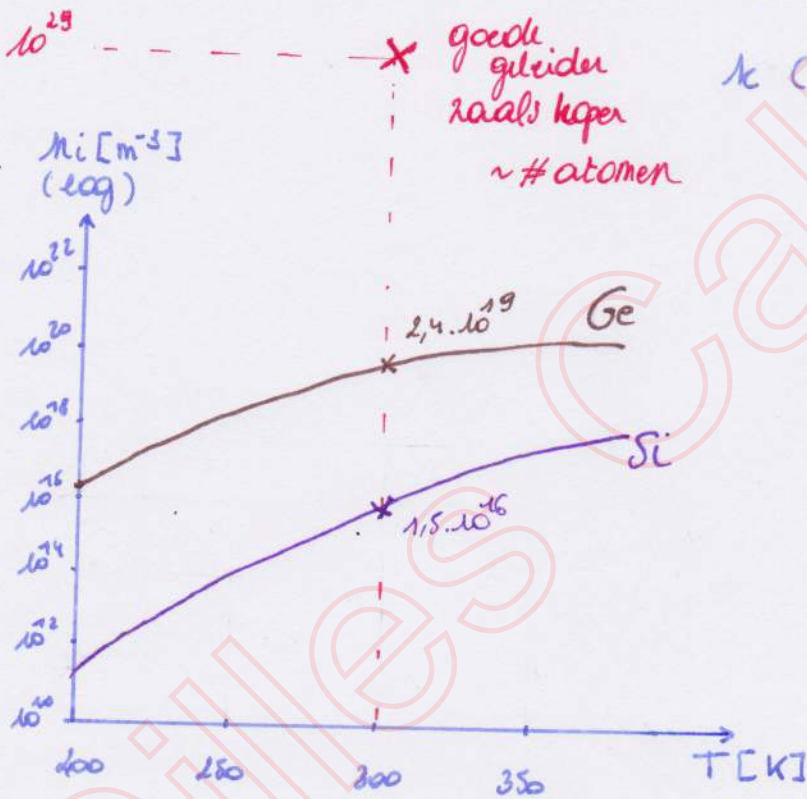 10^29
goede
geleider
zoals koper
~ # atomen
k (
ni [m^-3]
(log)
10^22
10^20
10^18
10^16
10^14
10^12
10^10
2,4.10^19
Ge
Si
1,5.10^16
200
250
300
350
T [K]